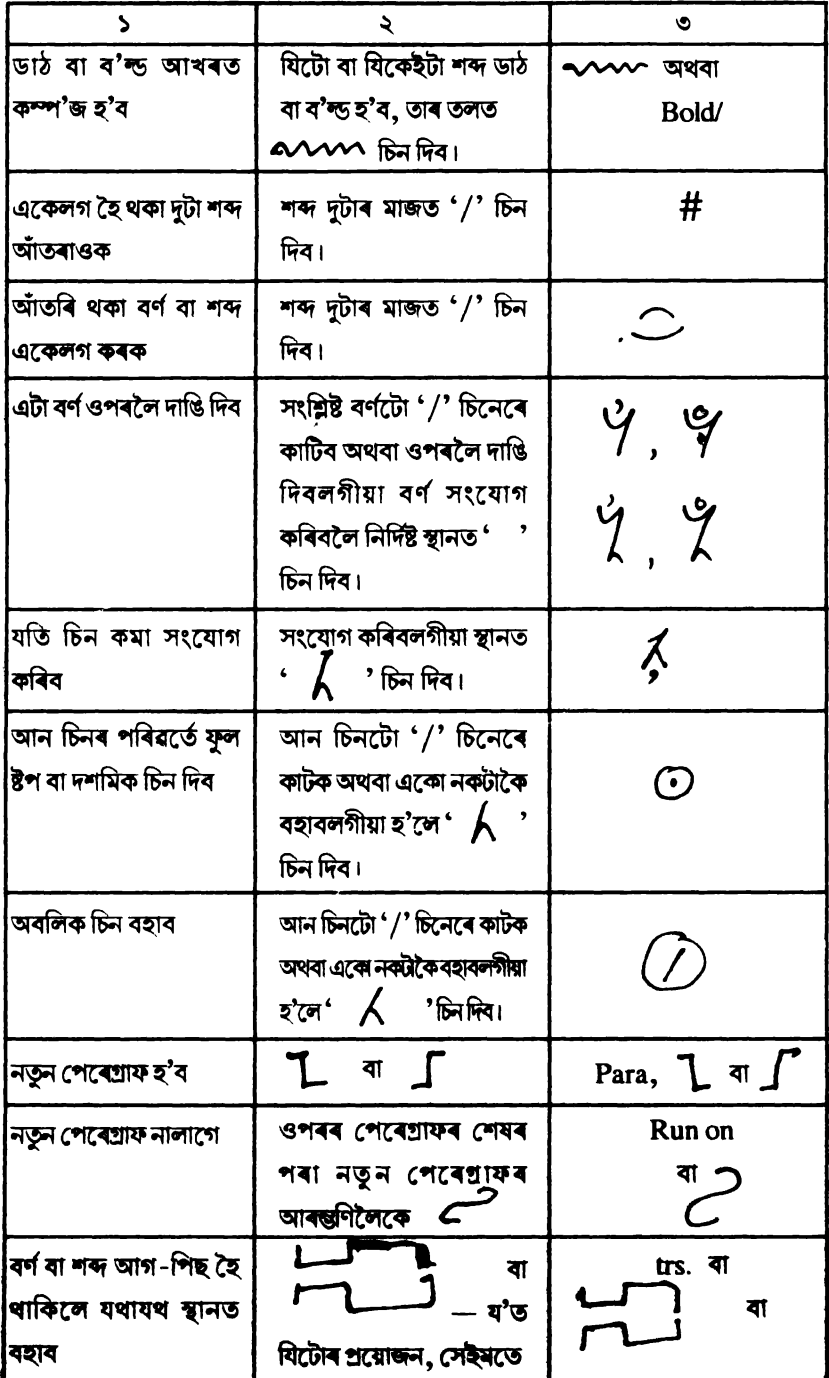 ১ ২ ৩
ডাঠ বা ব'ল্ড আখৰত
কম্প'জ হ'ব
যিটো বা যিকেইটা শব্দ ডাঠ
বা ব'ল্ড হ'ব, তাৰ তলত
চিন দিব।
অথবা
Bold/
একেলগ হৈ থকা দুটা শব্দ
আঁতৰাওক
শব্দ দুটাৰ মাজত ‘/’ চিন
দিব।
#
আঁতৰি থকা বৰ্ণ বা শব্দ
একেলগ কৰক
শব্দ দুটাৰ মাজত ‘/’ চিন
দিব।
এটা বৰ্ণ ওপৰলৈ দাঙি দিব
সংশ্লিষ্ট বৰ্ণটো ‘/’ চিনেৰে
কাটিব অথবা ওপৰলৈ দাঙি
দিবলগীয়া বৰ্ণ সংযোগ
কৰিবলৈ নিৰ্দিষ্ট স্থানত ‘ ’
চিন দিব।
যতি চিন কমা সংযোগ
কৰিব
সংযোগ কৰিবলগীয়া স্থানত
‘ ’ চিন দিব।
আন চিনৰ পৰিৱৰ্তে ফুল
ষ্টপ বা দশমিক চিন দিব
আন চিনটো ‘/’ চিনেৰে
কাটক অথবা একো নকটাকৈ
বহাবলগীয়া হ'লে ‘ ’
চিন দিব।
অবলিক চিন বহাব
আন চিনটো ‘/’ চিনেৰে কাটক
অথবা একো নকটাকৈ বহাবলগীয়া
হ'লে ‘ ’ চিন দিব।
নতুন পেৰেগ্ৰাফ হ'ব
বা
Para, বা
নতুন পেৰেগ্ৰাফ নালাগে
ওপৰৰ পেৰেগ্ৰাফৰ শেষৰ
পৰা নতুন পেৰেগ্ৰাফৰ
আৰম্ভণিলৈকে
Run on
বা
বৰ্ণ বা শব্দ আগ-পিছ হৈ
থাকিলে যথাযথ স্থানত
বহাব
বা
— য'ত
যিটোৰ প্ৰয়োজন, সেইমতে
trs. বা
বা